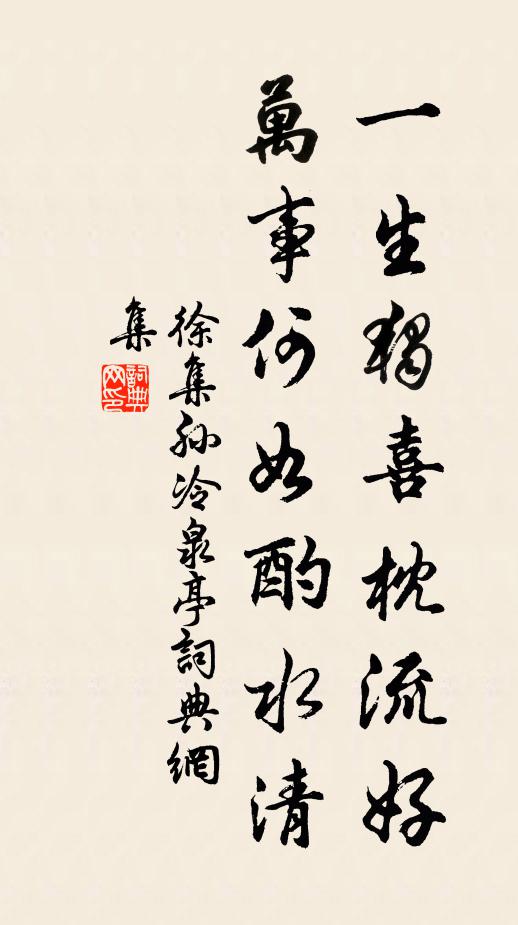 一生獨喜枕流好
萬事何如酌水清
徐集孫冷泉亭詞典網
集
詞典
网印